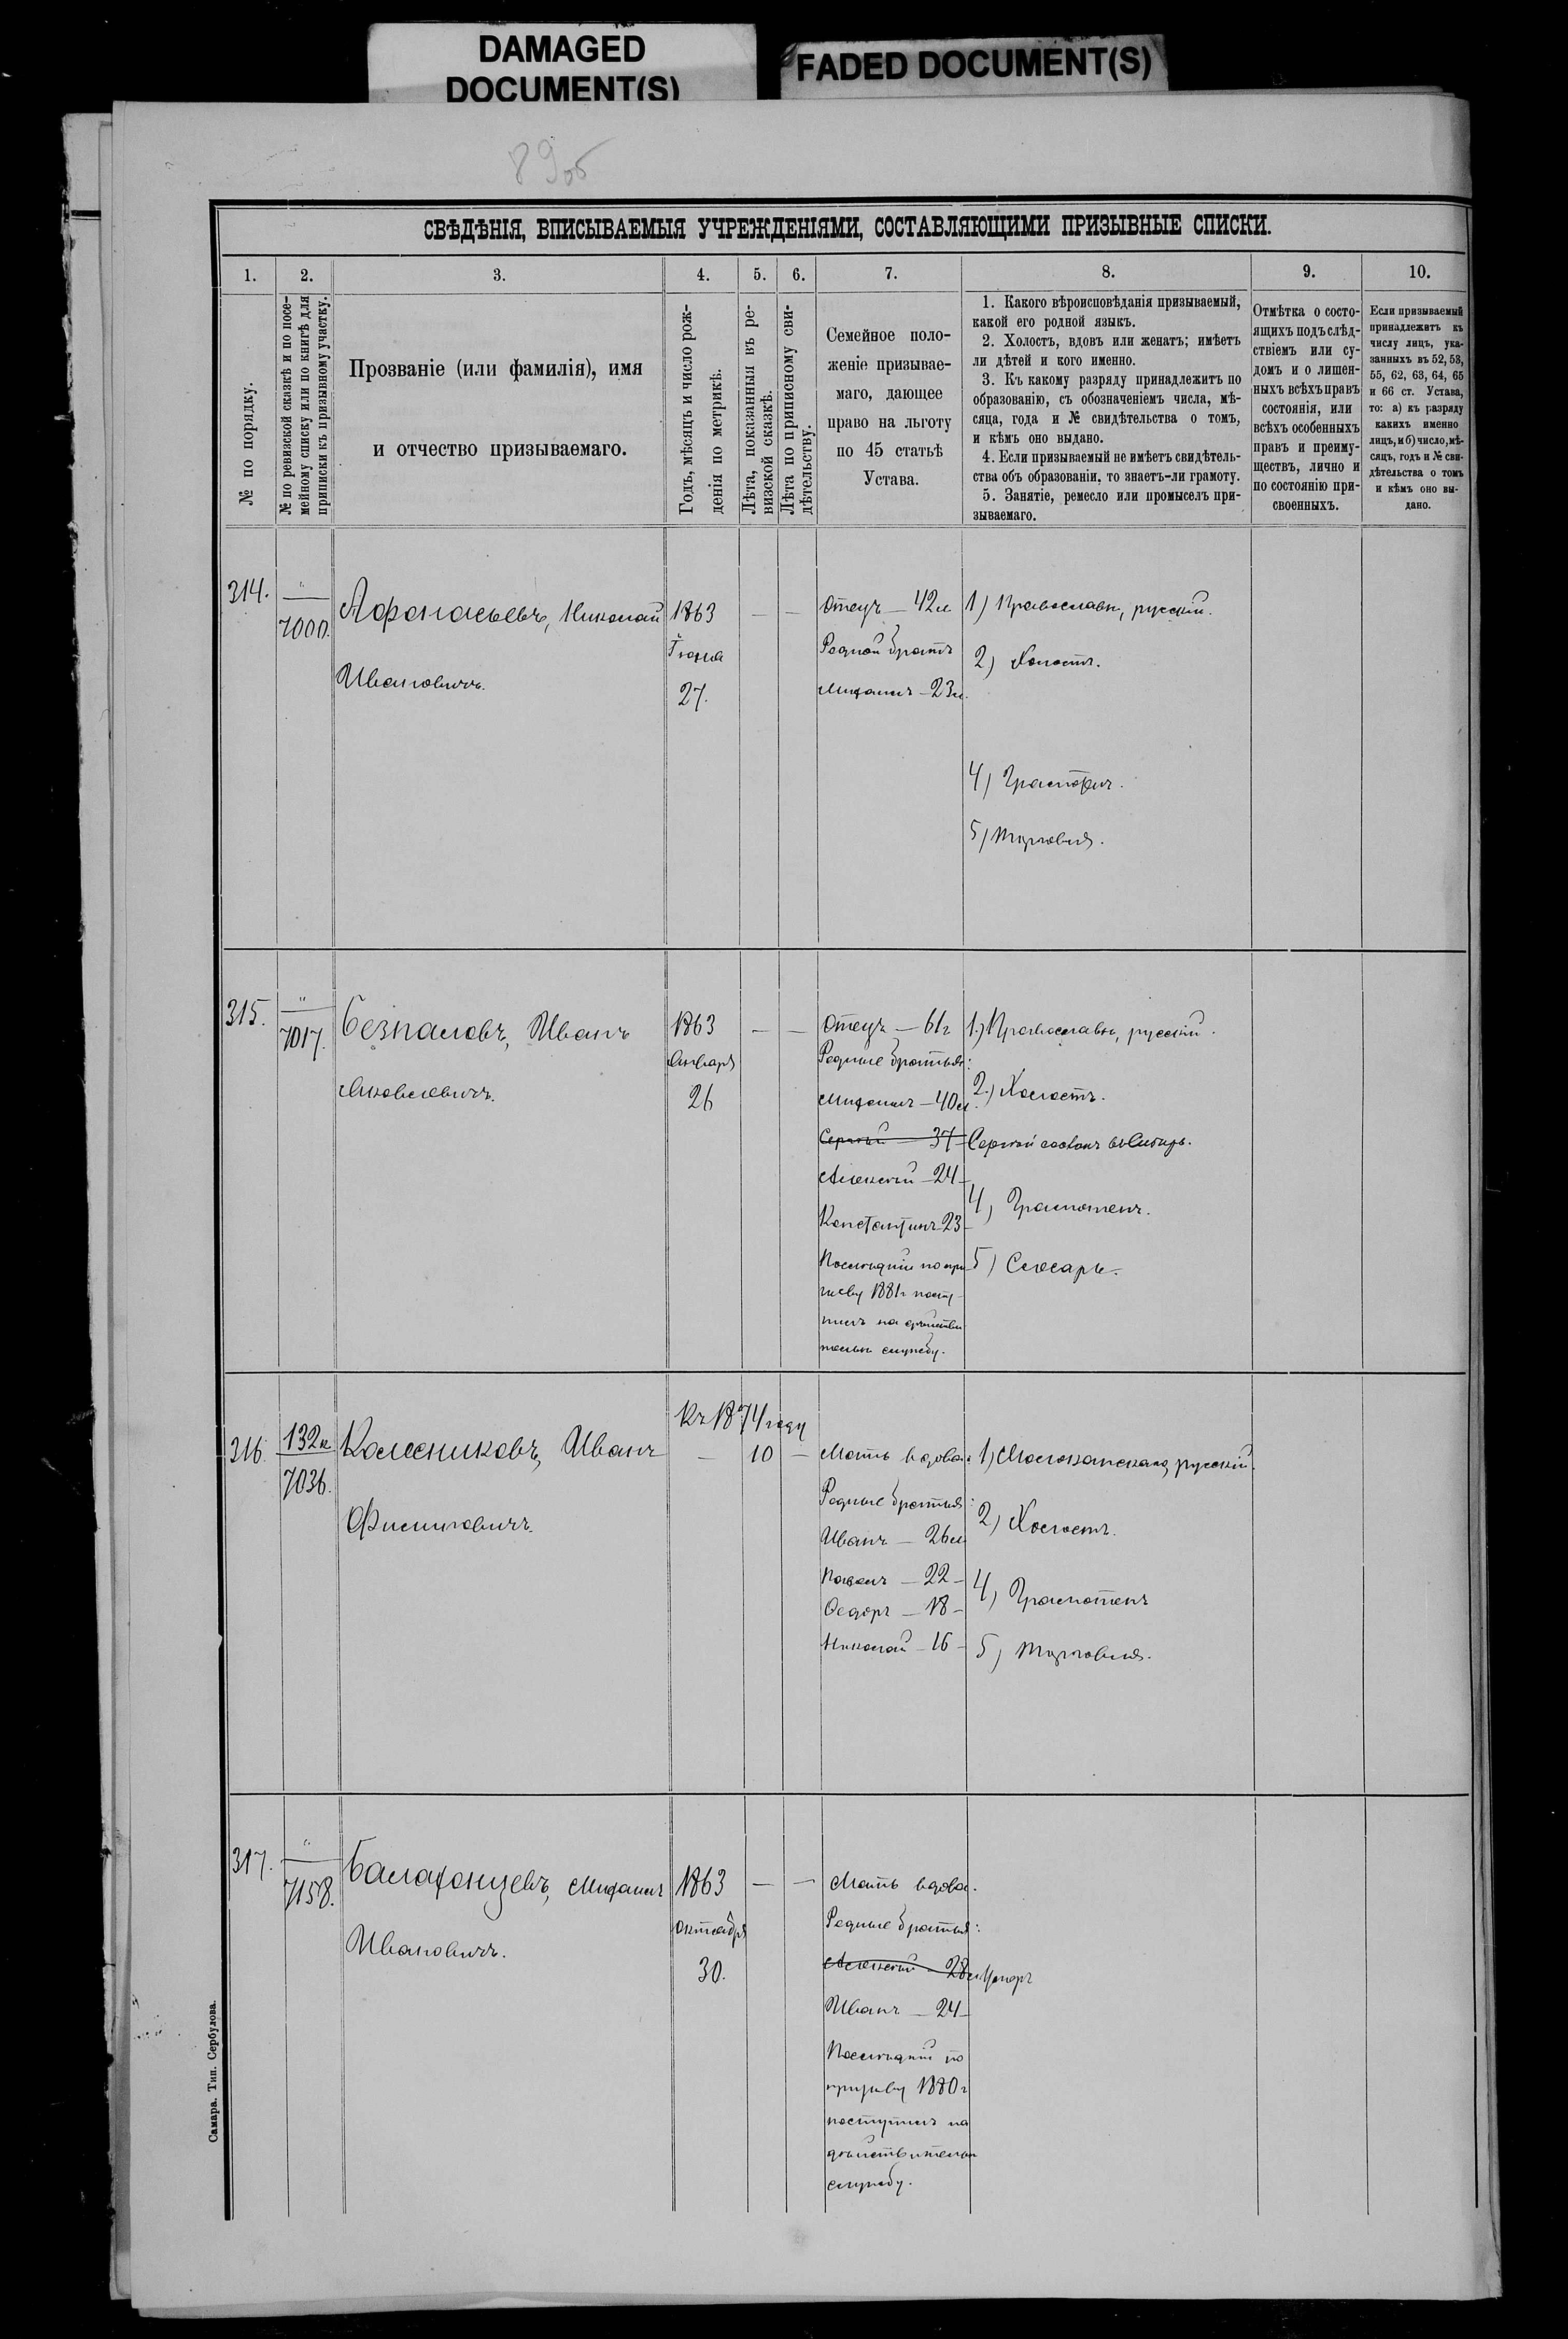 DAMAGED
DOCUMENT(S)
FADED DOCUMENT(S)
89об
СВѢДѢНІЯ, ВПИСЫВАЕМЫЯ УЧРЕЖДЕНІЯМИ, СОСТАВЛЯЮЩИМИ ПРИЗЫВНЫЕ СПИСКИ.
1.
2.
3.
4.
5.
6.
7.
8.
9.
10.
№ по порядку.
№ по ревизской сказкѣ и по посе-
мейному списку или по книгѣ для
приписки къ призывному участку.
Прозваніе (или фамилія), имя
и отчество призываемаго.
Годъ, мѣсяцъ и число рож-
денія по метрикѣ.
Лѣта, показанныя въ ре-
визской сказкѣ.
Лѣта по приписному сви-
дѣтельству.
Семейное поло-
женіе призывае-
маго, дающее
право на льготу
по 45 статьѣ
Устава.
1. Какого вѣроисповѣданія призываемый,
какой его родной языкъ.
2. Холостъ, вдовъ или женатъ; имѣетъ
ли дѣтей и кого именно.
3. Къ какому разряду принадлежитъ по
образованію, съ обозначеніемъ числа, мѣ-
сяца, года и № свидѣтельства о томъ,
и кѣмъ оно выдано.
4. Если призываемый не имѣетъ свидѣтель-
ства объ образованіи, то знаетъ-ли грамоту.
5. Занятіе, ремесло или промыселъ при-
зываемаго.
Отмѣтка о состо-
ящихъ подъ слѣд-
ствіемъ или су-
домъ и о лишен-
ныхъ всѣхъ правъ
состоянія, или
всѣхъ особенныхъ
правъ и преиму-
ществъ, лично и
по состоянію при-
своенныхъ.
Если призываемый
принадлежитъ къ
числу лицъ, ука-
занныхъ въ 52, 53,
55, 62, 63, 64, 65
и 66 ст. Устава,
то: а) къ разряду
какихъ именно
лицъ, и б) число, мѣ-
сяцъ, годъ и № сви-
дѣтельства о томъ
и кѣмъ оно вы-
дано.
314.
"
7000.
Афонасьевъ, Николай
Ивановичъ.
1863
Іюня
27.
—
—
Отецъ — 42 л
Родной братъ
Михаилъ — 23 л.
1) Православн, русскій.
2) Холостъ.
4) Грамотенъ.
5) Торговля.
315.
"
7017.
Безпаловъ, Иванъ
Яковлевичъ.
1863
Января
26
—
—
Отецъ — 61 г
Родные братья:
Михаилъ — 40 л.
Сергѣй — 37 —
Алексѣй — 24 —
Константинъ 23 —
Послѣдній по при
зыву 1881 г посту
пилъ на дѣйстви
тельн службу.
1.) Православн, русскій.
2.) Холостъ.
Сергѣй сосланъ въ Сибирь.
4) Грамотенъ.
5) Слесарь.
316.
132 к
7036.
Колесниковъ, Иванъ
Филиповичъ.
Къ 1874 году
—
10
—
Мать вдова.
Родные братья:
Иванъ — 26 л
Павелъ — 22 —
Ѳедоръ — 18 —
Николай — 16 —
1) Молоканская, русскій.
2) Холостъ.
4) Грамотенъ
5) Торговля.
317.
"
7158.
Балафонцевъ, Михаилъ
Ивановичъ.
1863
Октября
30.
—
—
Мать вдова.
Родные братья:
Алексѣй — 28 л Умеръ
Иванъ — 24 —
Послѣдній по
призыву 1880 г
поступилъ на
дѣйствительн
службу.
Самара. Тип. Сербулова.